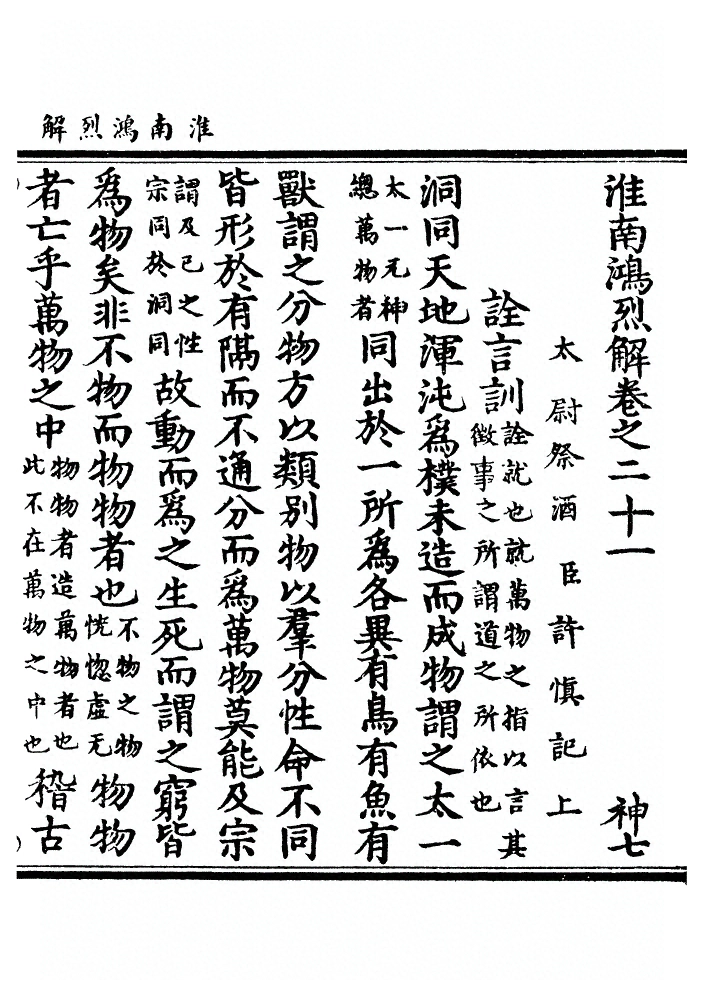 淮南鴻烈解
淮南鴻烈解卷之二十一 神七
太尉祭酒臣許慎記上
詮言訓詮就也就萬物之指以言其徵事之所謂道之所依也
洞同天地渾沌爲樸未造而成物謂之太一
太一元神緫萬物者同出於一所爲各異有鳥有魚有
獸謂之分物方以類別物以羣分性命不同
皆形於有隔而不通分而爲萬物莫能及宗
謂及已之性宗同於洞同故動而爲之生死而謂之窮皆
爲物矣非不物而物物者也不物之物恍惚虛无物物
者亡乎萬物之中物物者造萬物者也此不在萬物之中也稽古